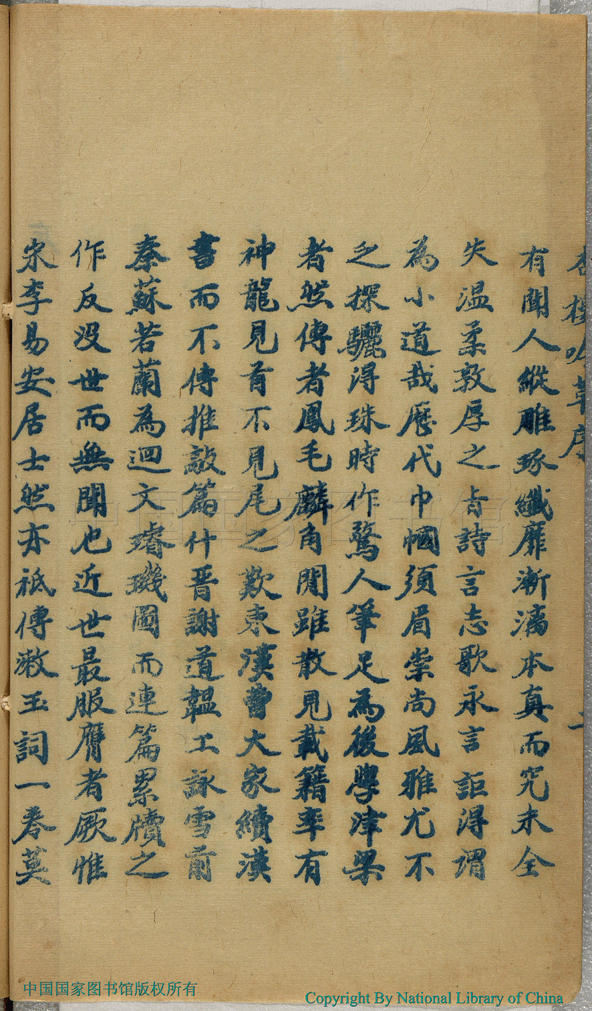 吟草序
二
有聞人縱雕琢纖靡漸漓本真而究未全
失温柔敦厚之旨詩言志歌永言詎得謂
為小道哉歷代巾幗須眉崇尚風雅尤不
乏探驪得珠時作驚人筆足為後學津梁
者然傳者鳳毛麟角閒雖散見載籍率有
神龍見首不見尾之歎東漢曹大家續漢
書而不傳推敲篇什晋謝道韞工詠雪前
秦蘇若蘭為迴文璿璣圖而連篇累牘之
作反没世而無聞也近世最服膺者厥惟
宋李易安居士然亦祗傳漱玉詞一卷莫
中国国家图书馆
中国国家图书馆版权所有
Copyright By National Library of China